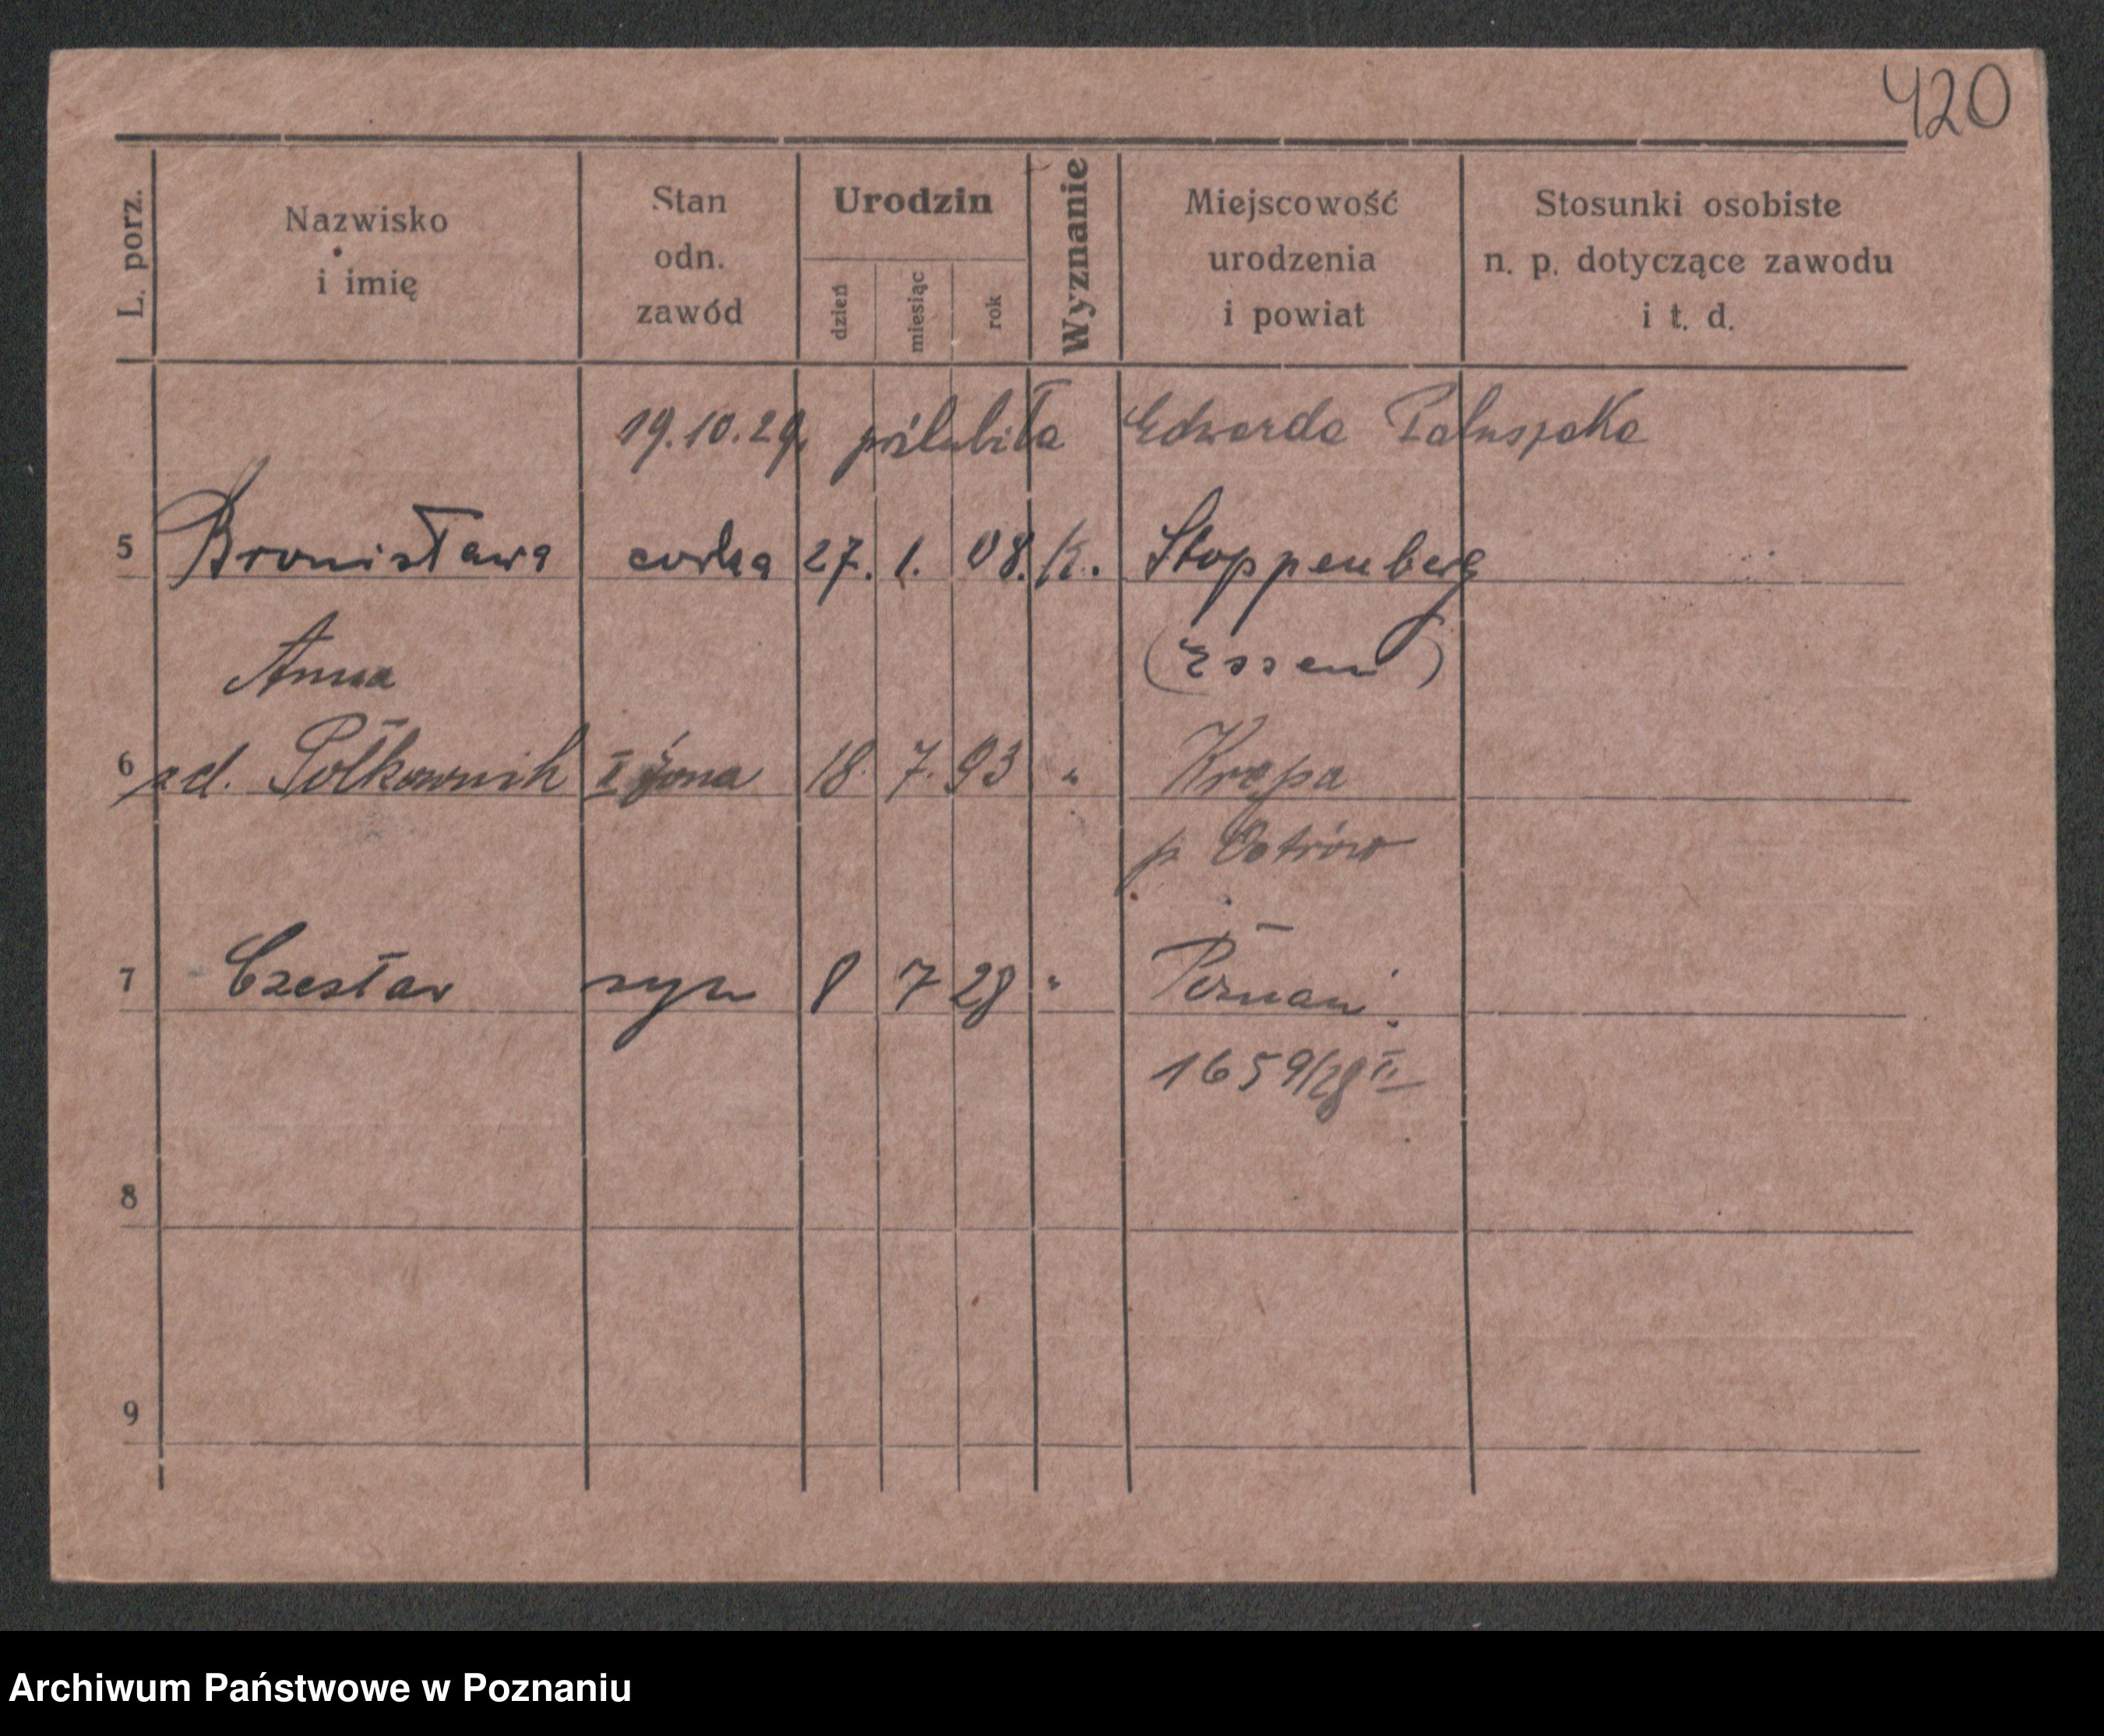 420
L. porz.
Nazwisko
i imię
Stan
odn.
zawód
Urodzin
dzień
miesiąc
rok
Wyznanie
Miejscowość
urodzenia
i powiat
Stosunki osobiste
n. p. dotyczące zawodu
i t. d.
19.10.29 Edwarda
5 Bronisława córka 27. 1. 08. K. Stoppenberg
(Essen)
Anna
6 zd. Półkownik II żona 18. 7. 93 " Krępa
p Ostrów
7 Czesław syn 8 7 28 " Poznań
1659/28 II
8
9
Archiwum Państwowe w Poznaniu